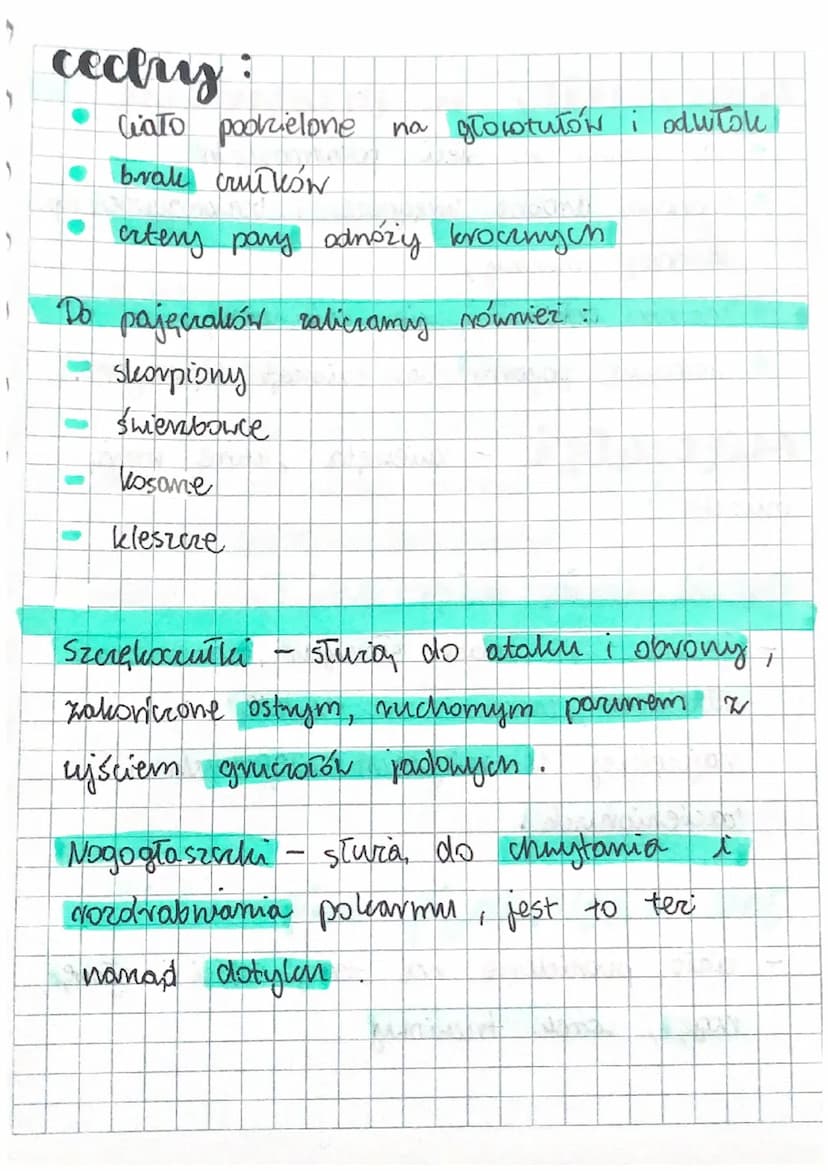 cechy:
• Ciało podzielone na głowotułów i odwłok
• brak czułków
• cztery pary odnóży krocznych
Do pajęczaków zaliczamy również:
- skorpiony
- świerzbowce
- kosarze
- kleszcze
Szczękoczułki - służą do ataku i obrony,
zakończone ostrym, ruchomym pazurem z
ujściem gruczołów jadowych.
Nogogłaszczki - służą do chwytania i
rozdrabniania pokarmu, jest to też
narząd dotyku.